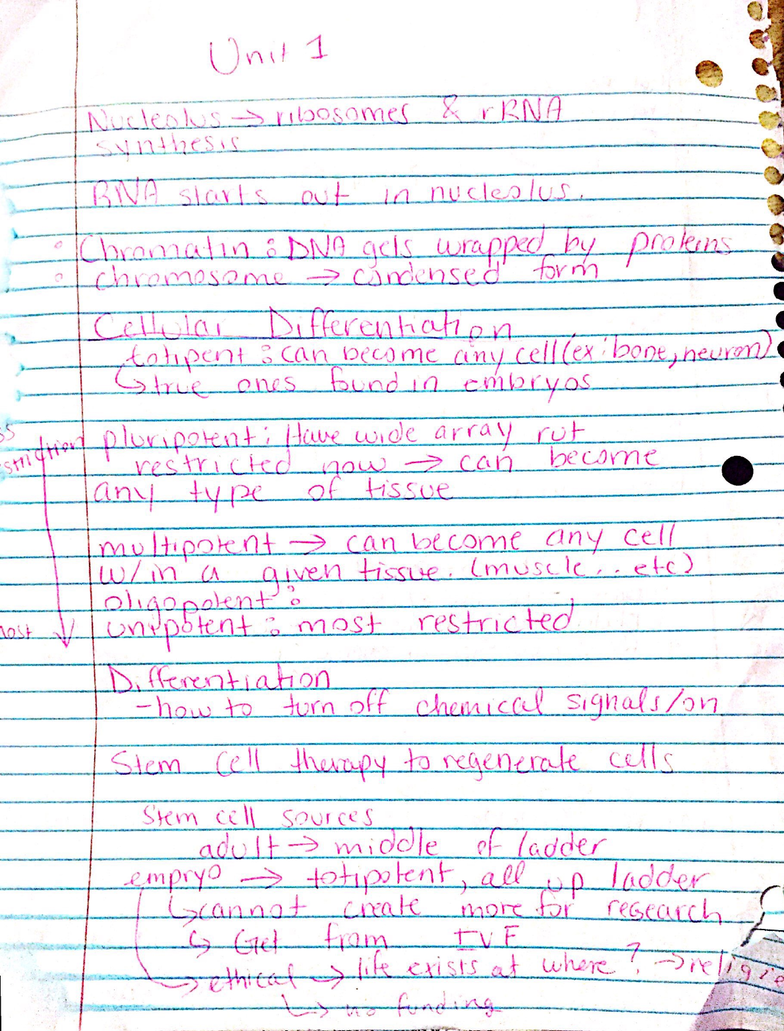 Unit 1
Nucleolus → ribosomes & rRNA
synthesis
RNA starts out in nucleolus.
◦ Chromatin : DNA gets wrapped by proteins
◦ chromosome → condensed form
Cellular Differentiation
totipent : can become any cell (ex: bone, neuron)
↳ true ones found in embryos
pluripotent : Have wide array rut
restricted now → can become
any type of tissue
multipotent → can become any cell
w/in a given tissue. (muscle... etc)
oligopotent :
unipotent : most restricted
Differentiation
- how to turn off chemical signals/on
Stem cell therapy to regenerate cells
Stem cell sources
adult → middle of ladder
empryo → totipotent, all up ladder
↳ cannot create more for research
↳ Get from IVF
→ ethical → life exists at where? → religi
↳ no funding